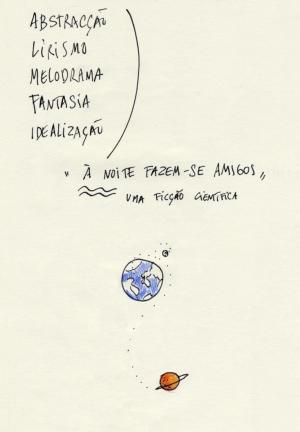 ABSTRACÇÃO
LIRISMO
MELODRAMA
FANTASIA
IDEALIZAÇÃO
"À NOITE FAZEM-SE AMIGOS"
UMA FICÇÃO CIENTÍFICA